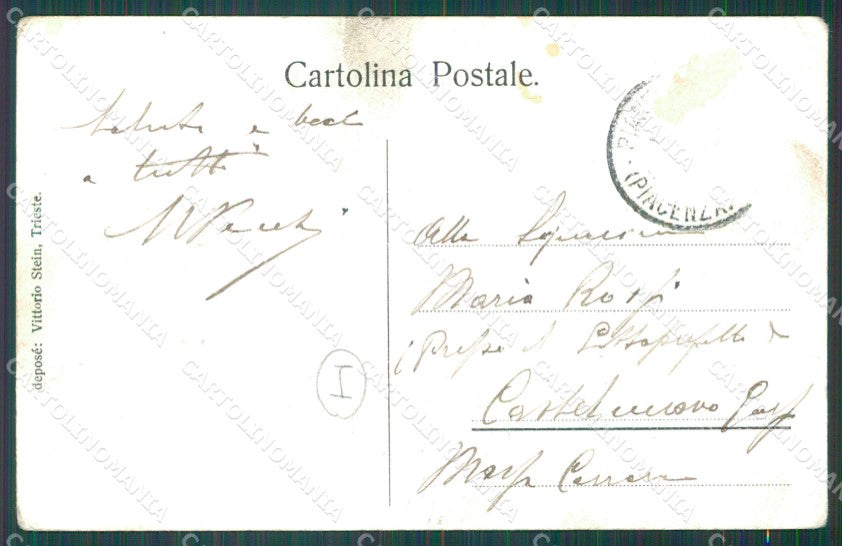 Cartolina Postale.
Saluti e baci
a tutti
deposé: Vittorio Stein, Trieste.
(PIACENZA)
Alla Signorina
Maria Rossi
(Presso il
Castelnuovo Garf
Massa Carrara
I
CARTOLINOMANIA